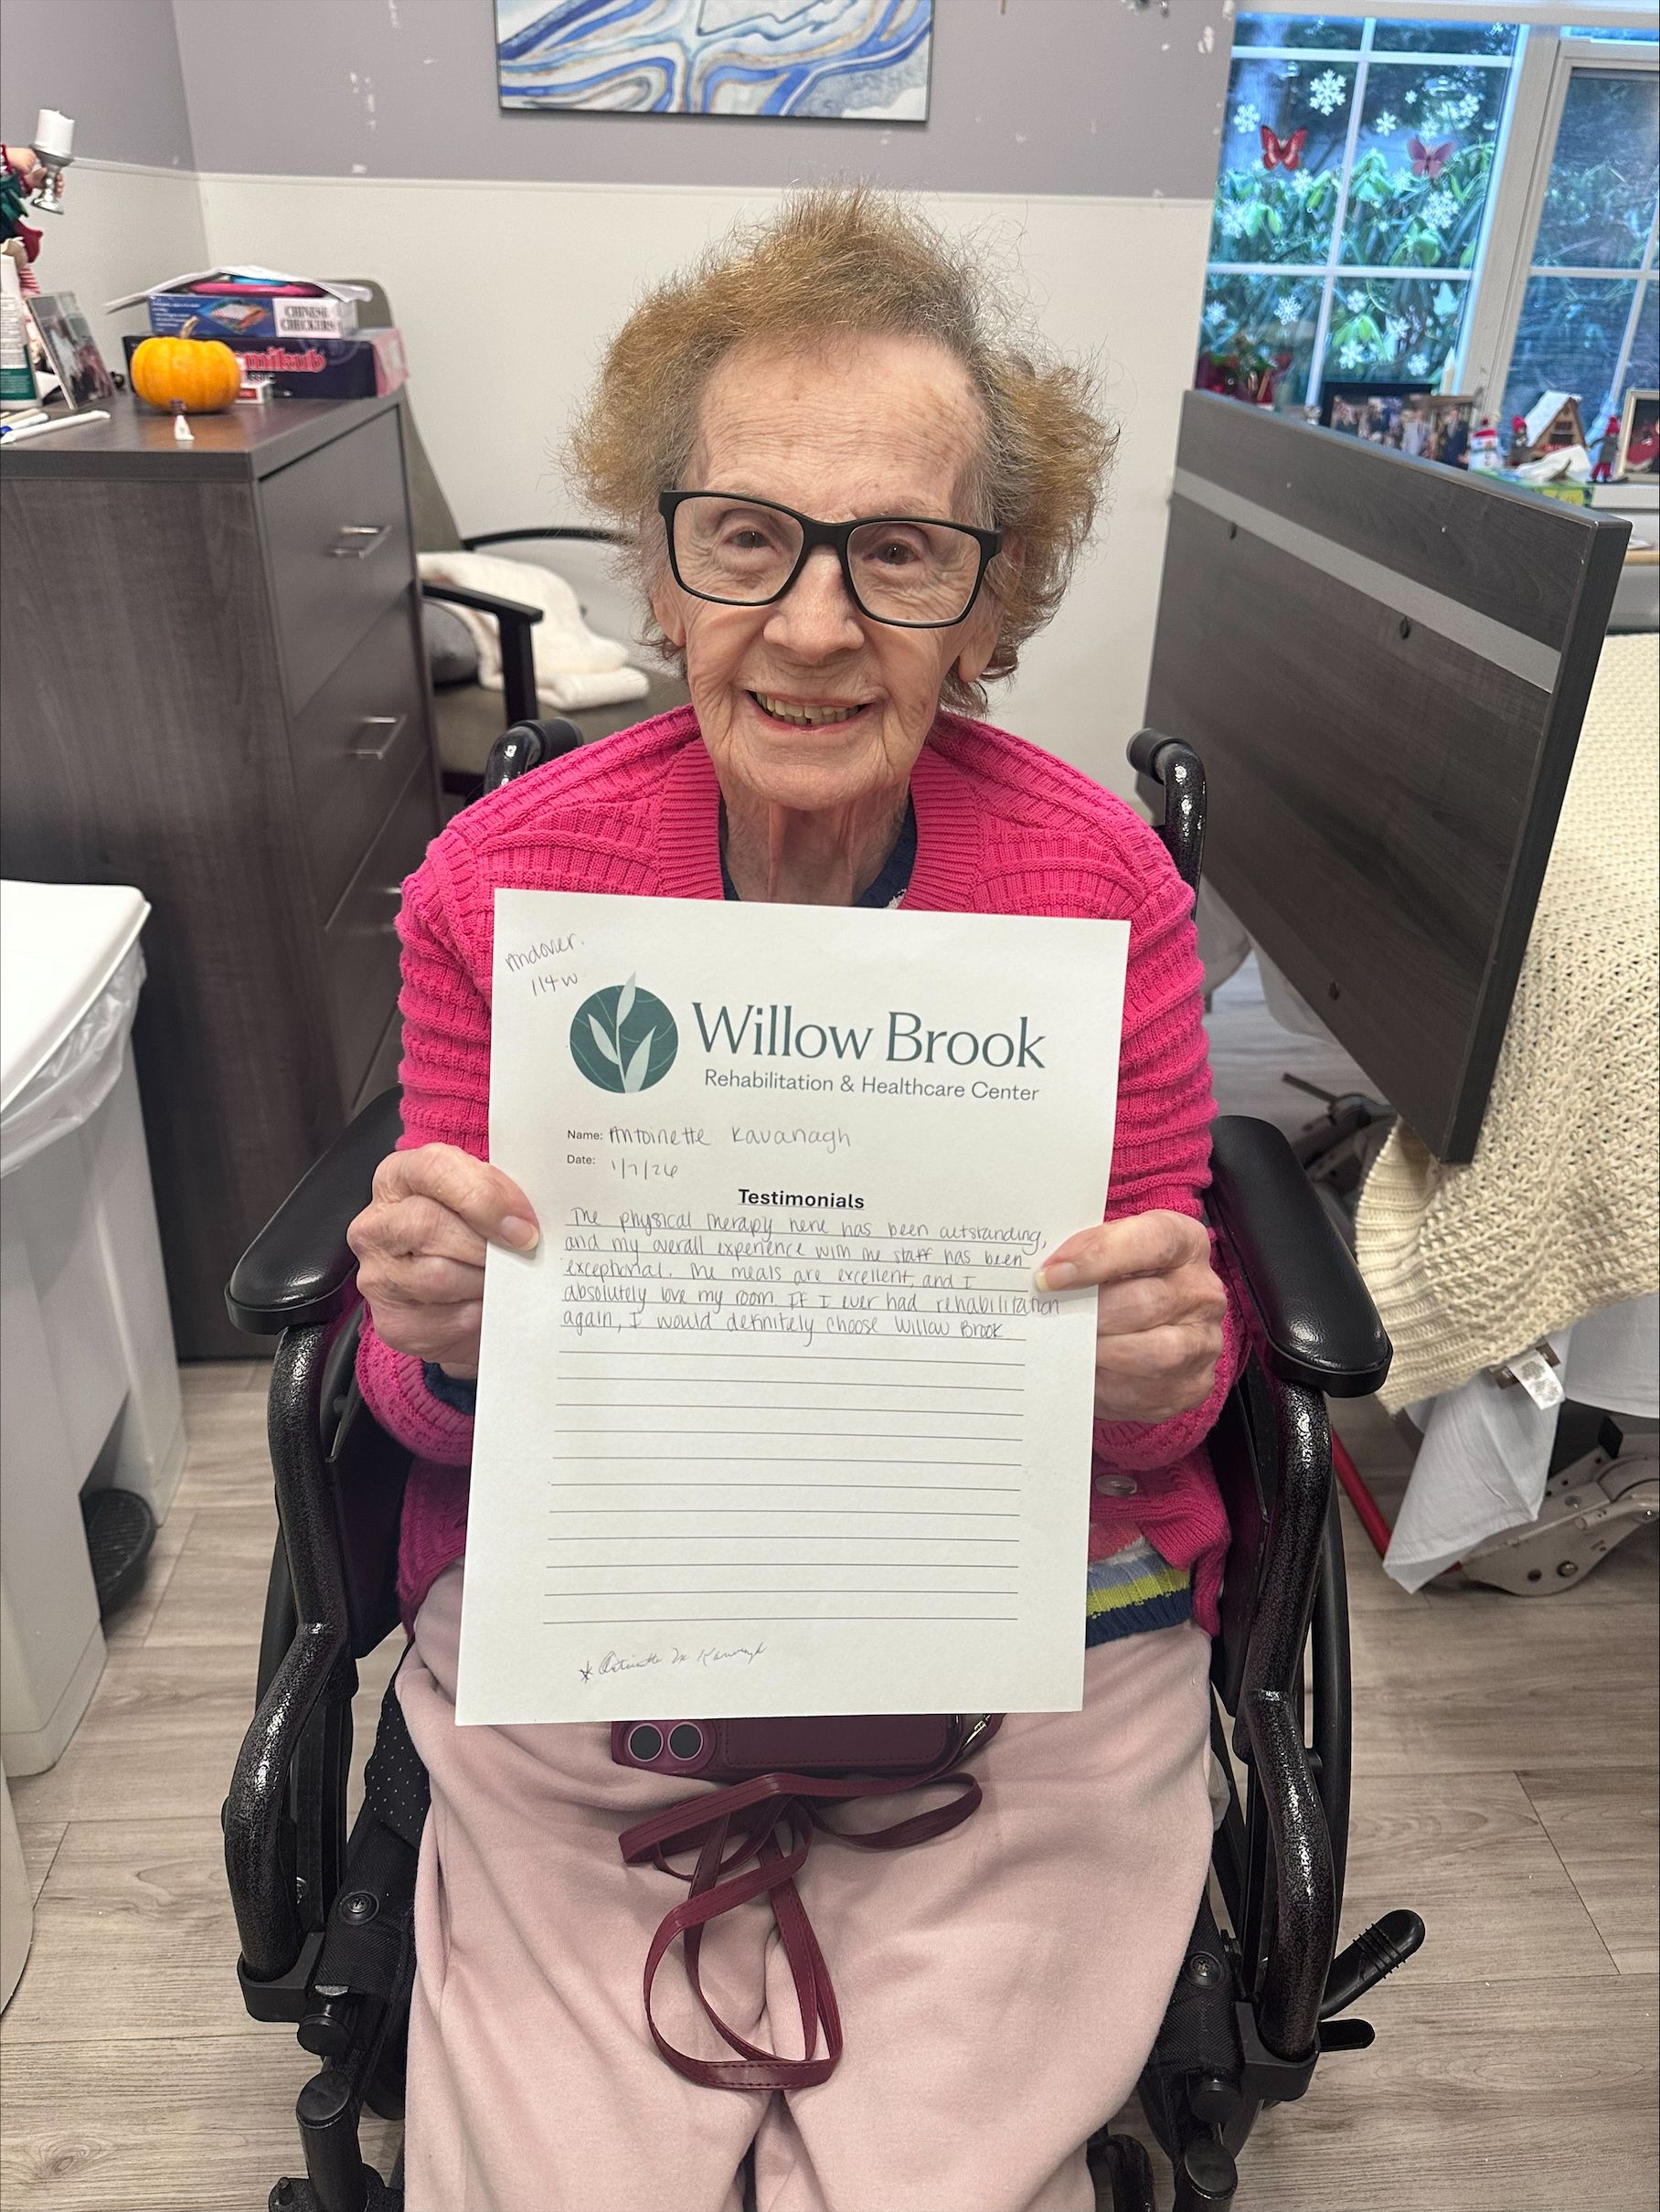 CHINESE
CHECKERS
mikub
Andover.
114W
Willow Brook
Rehabilitation & Healthcare Center
Name: Antoinette Kavanagh
Date: 1/7/26
Testimonials
The physical therapy here has been outstanding,
and my overall experience with the staff has been
exceptional. The meals are excellent, and I
absolutely love my room. If I ever had rehabilitation
again, I would definitely choose Willow Brook
* Antoinette M Kavanagh